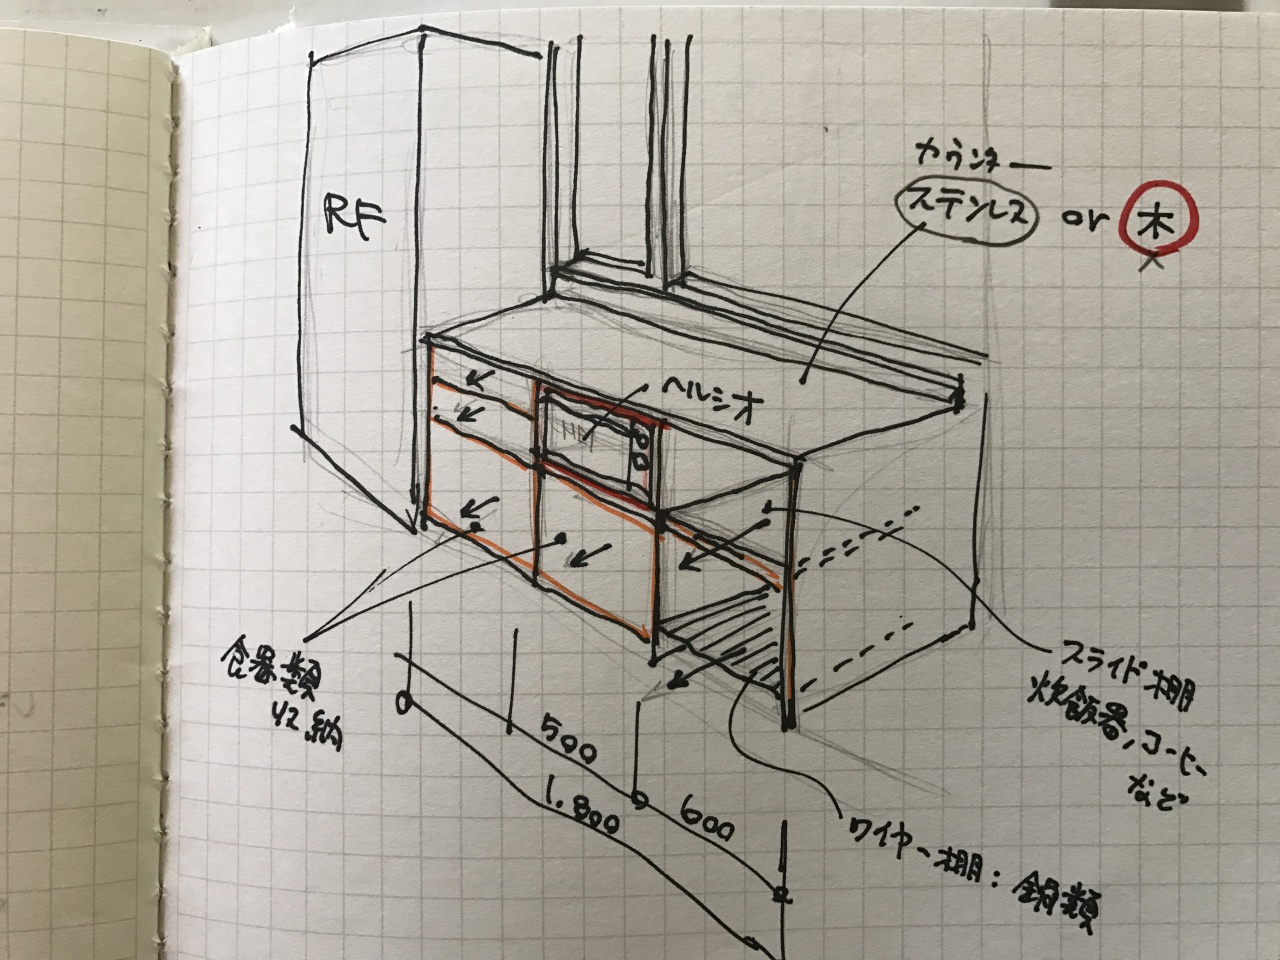 カウンター
ステンレス or 木
RF
ヘルシオ
食器類
収納
スライド棚
炊飯器、コーヒー
など
500
1.800
600
ワイヤー棚:鍋類